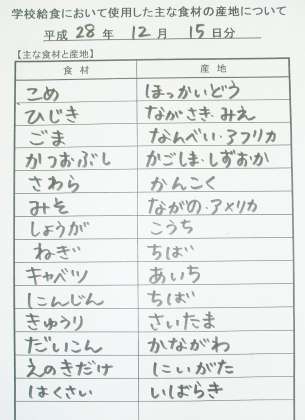 学校給食において使用した主な食材の産地について
平成 28 年 12 月 15 日分
【主な食材と産地】
食 材 産 地
こめ ほっかいどう
ひじき ながさき・みえ
ごま なんべい・アフリカ
かつおぶし かごしま・しずおか
さわら かんこく
みそ ながの・アメリカ
しょうが こうち
ねぎ ちば
キャベツ あいち
にんじん ちば
きゅうり さいたま
だいこん かながわ
えのきだけ にいがた
はくさい いばらき